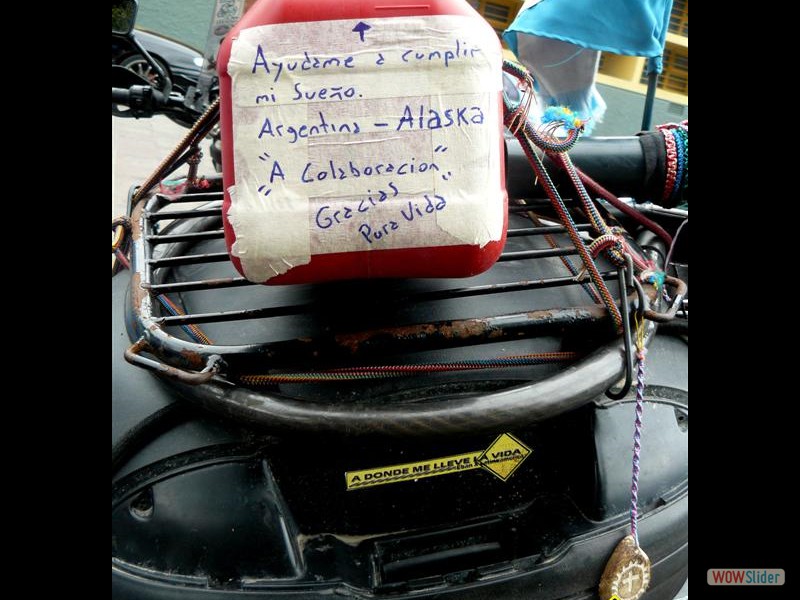 Ayudame a cumplir
mi Sueño.
Argentina - Alaska
"A Colaboracion"
"Gracias"
Pura Vida
A DONDE ME LLEVE LA VIDA
WOWSlider